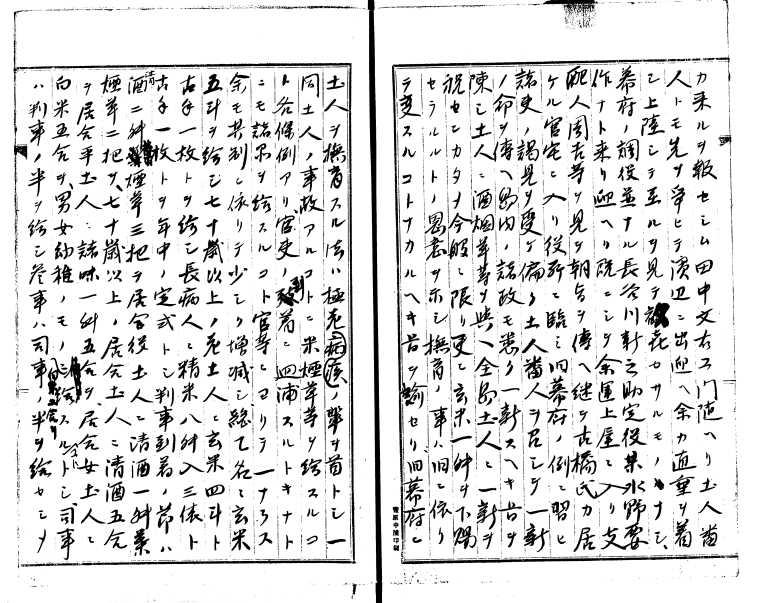 力来ルヲ報セシム田中文右ヱ門随ヘリ土人酋
人トモ先ヲ争ヒテ濱辺ニ出迎ヘ余カ直垂ヲ着
シ上陸シテ至ルヲ見テ歓喜セサルモノナシ、
幕府ノ調役並ナル長谷川新之助定役某水野要
作ナト来リ迎ヘリ既ニシテ余運上屋ニ入リ支
配人国吉等ヲ見朝旨ヲ傳ヘ継テ古橋氏カ居
ケル官宅ニ入リ役所ニ臨ミ旧幕府ノ例ニ習ヒ
諸吏ノ謁見ヲ受ケ偏ク土人酋人ヲ召シテ一新
ノ命ヲ傳ヘ島内ノ諸政モ悉ク一新スヘキ旨ヲ
陳シ土人ニ酒烟草等ヲ與ヘ全島土人ニ一新ヲ
祝センカタメ今般ニ限リ更ニ玄米一舛ヲ下賜
セラルルト、恩意ヲ示シ撫育ノ事ハ旧ニ依リ
テ変スルコトナカルヘキ旨ヲ諭セリ旧幕府ニ
土人ヲ撫育スル法ハ極老病疾ノ輩ヲ首トシ一
同土人ノ事故アルコトニ米煙草等ヲ給スルコ
ト各條例アリ、官吏ノ到着ニ回浦スルトキナト
ニモ諸品ヲ給スルコト官等ニヨリテ一ナラス
余モ其制ニ依リテ少シク増減シ総テ名ニ玄米
五斗ヲ給シ七十歳以上ノ老土人ニ玄米四斗ト
古手一枚トヲ給シ長病人ニ精米八舛入三俵ト
古手一枚トヲ年中ノ定式トシ判事到着ノ節ハ
清酒二舛煙草三把ヲ居合役土人ニ清酒一舛葉
煙草二把ヲ、七十歳以上ノ居合土人ニ清酒五合
ヲ居合平土人ニ諸味一舛五合ヲ、居合女土人ニ
白米五合ヲ、男女幼稚ノモノニ給スルトシ司事
ハ判事ノ半ヲ給シ参事ハ司事ノ半ヲ給セシメ